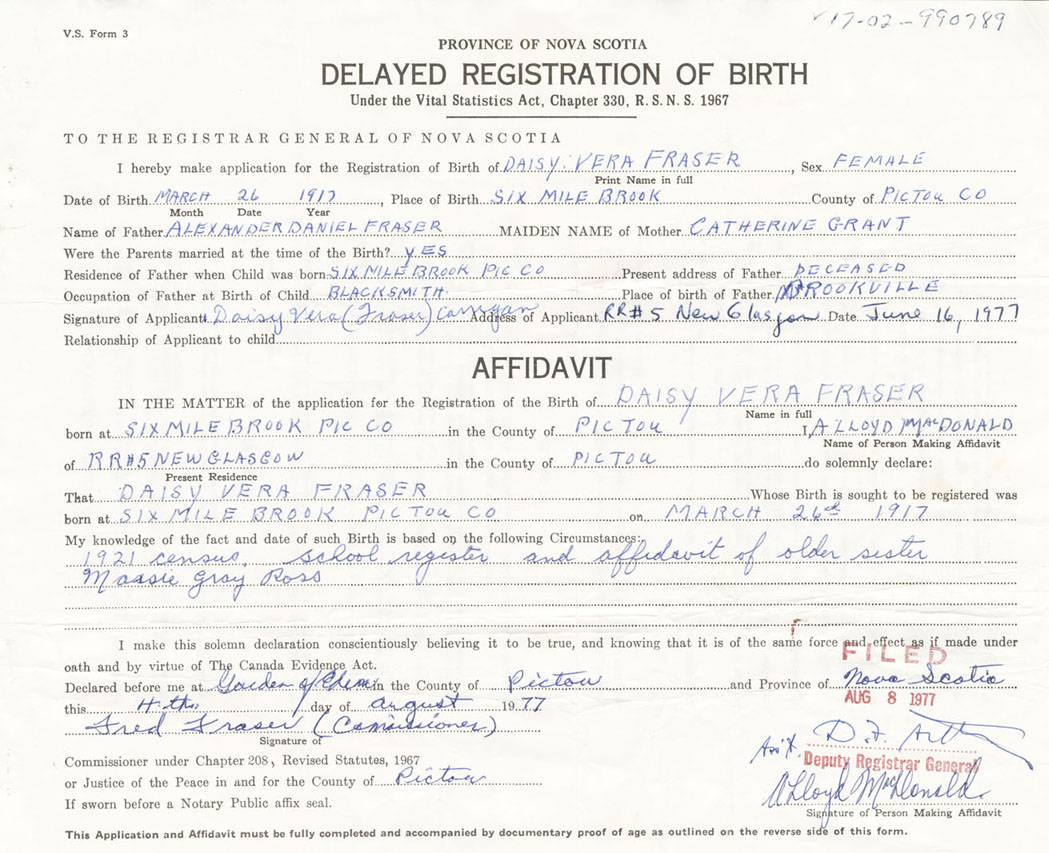 V.S. Form 3
17-02-990789
PROVINCE OF NOVA SCOTIA
DELAYED REGISTRATION OF BIRTH
Under the Vital Statistics Act, Chapter 330, R. S. N. S. 1967
TO THE REGISTRAR GENERAL OF NOVA SCOTIA
I hereby make application for the Registration of Birth of DAISY VERA FRASER, Sex FEMALE
Print Name in full
Date of Birth MARCH 26 1917, Place of Birth SIX MILE BROOK County of PICTOU CO
Month Date Year
Name of Father ALEXANDER DANIEL FRASER MAIDEN NAME of Mother CATHERINE GRANT
Were the Parents married at the time of the Birth? YES
Residence of Father when Child was born SIX MILE BROOK PIC CO Present address of Father DECEASED
Occupation of Father at Birth of Child BLACKSMITH Place of birth of Father BROOKVILLE
Signature of Applicant Daisy Vera (Fraser) Address of Applicant RR#5 New Glasgow Date June 16, 1977
Relationship of Applicant to child
AFFIDAVIT
IN THE MATTER of the application for the Registration of the Birth of DAISY VERA FRASER
Name in full
born at SIX MILE BROOK PIC CO in the County of PICTOU I, A LLOYD MACDONALD
Name of Person Making Affidavit
of RR#5 NEW GLASGOW in the County of PICTOU do solemnly declare:
Present Residence
That DAISY VERA FRASER Whose Birth is sought to be registered was
born at SIX MILE BROOK PICTOU CO on MARCH 26th 1917
My knowledge of the fact and date of such Birth is based on the following Circumstances:
1921 census, school register and affidavit of older sister
Gray Ross
I make this solemn declaration conscientiously believing it to be true, and knowing that it is of the same force and effect as if made under
oath and by virtue of The Canada Evidence Act.
FILED
Declared before me at Garden of Eden in the County of Pictou and Province of Nova Scotia
AUG 8 1977
this 4th day of August 1977
Fred Fraser (Commissioner)
Signature of
Deputy Registrar General
Commissioner under Chapter 208, Revised Statutes, 1967
or Justice of the Peace in and for the County of Pictou
A Lloyd MacDonald
If sworn before a Notary Public affix seal.
Signature of Person Making Affidavit
This Application and Affidavit must be fully completed and accompanied by documentary proof of age as outlined on the reverse side of this form.